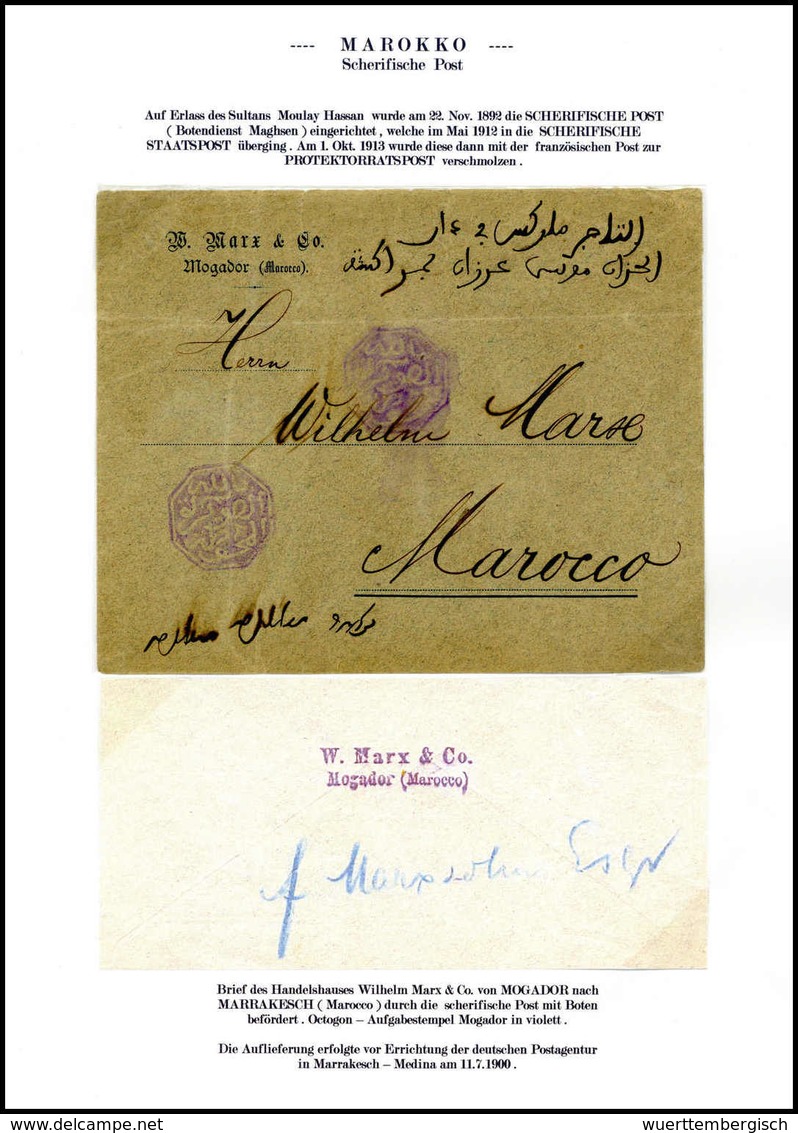 ---- MAROKKO ----
Scherifische Post
Auf Erlass des Sultans Moulay Hassan wurde am 22. Nov. 1892 die SCHERIFISCHE POST
( Botendienst Maghsen ) eingerichtet , welche im Mai 1912 in die SCHERIFISCHE
STAATSPOST überging . Am 1. Okt. 1913 wurde diese dann mit der französischen Post zur
PROTEKTORRATSPOST verschmolzen .
W. Marx & Co.
Mogador (Marocco).
التاجر
Herrn
Wilhelm Marx
Marocco
W. Marx & Co.
Mogador (Marocco)
Esqr
Brief des Handelshauses Wilhelm Marx & Co. von MOGADOR nach
MARRAKESCH ( Marocco ) durch die scherifische Post mit Boten
befördert . Octogon – Aufgabestempel Mogador in violett .
Die Auflieferung erfolgte vor Errichtung der deutschen Postagentur
in Marrakesch – Medina am 11.7.1900 .
wuerttembergisch